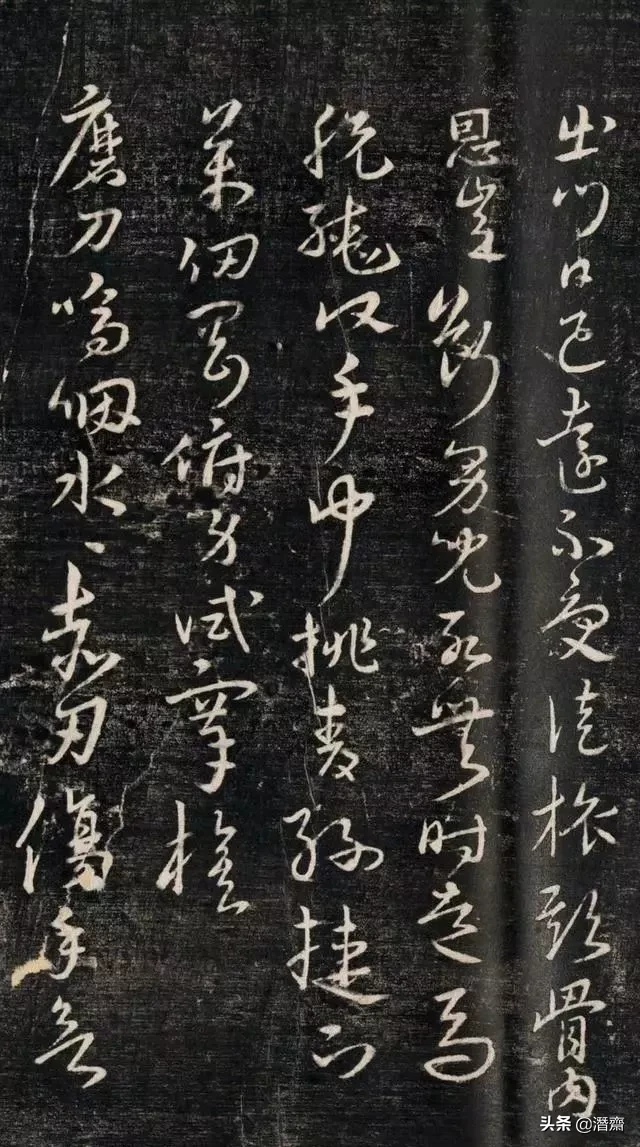 出門日已遠不受徒旅欺骨肉
恩豈斷男兒死無時走馬
脫轡頭手中挑青絲捷下
萬仞岡俯身試搴旗
磨刀嗚咽水、赤刃傷手欲
头条 @潛齋